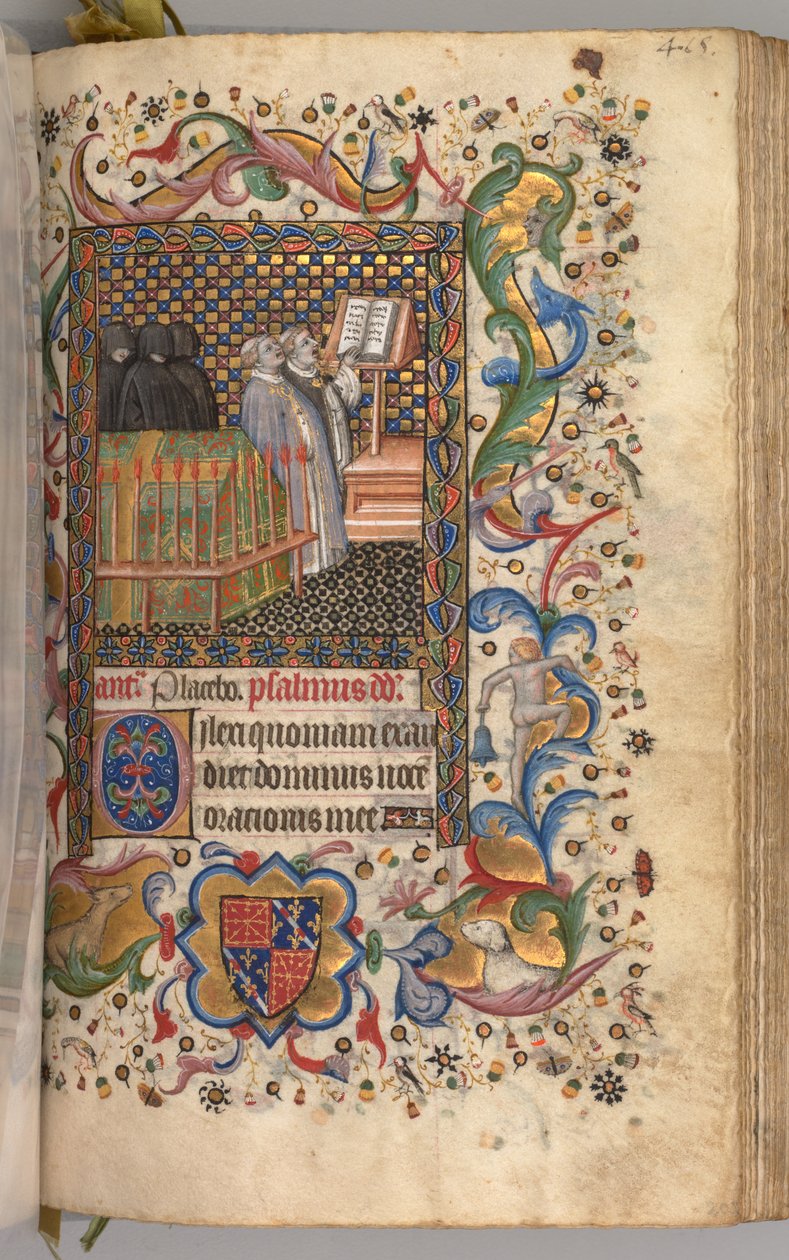 ant̄. Placebo. psalmus dd̄.
Dilexi quoniam exau
diet dominus uocē
orationis mee